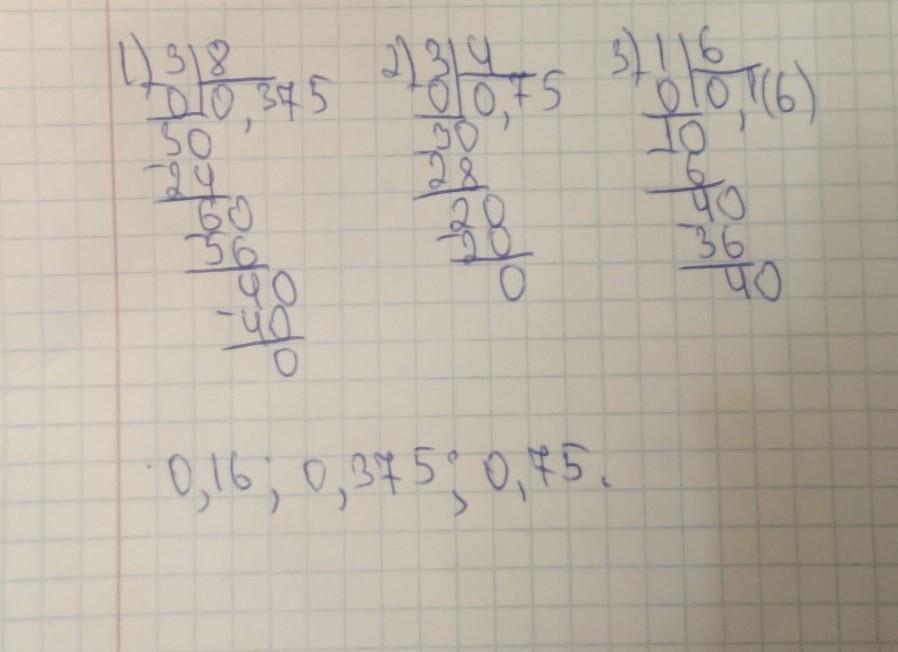 1) 3 8
0 0,375
30
-24
60
-56
40
-40
0
2) 3 4
0 0,75
30
-28
20
-20
0
3) 1 6
0 0,1(6)
10
-6
40
-36
40
0,16; 0,375; 0,75.